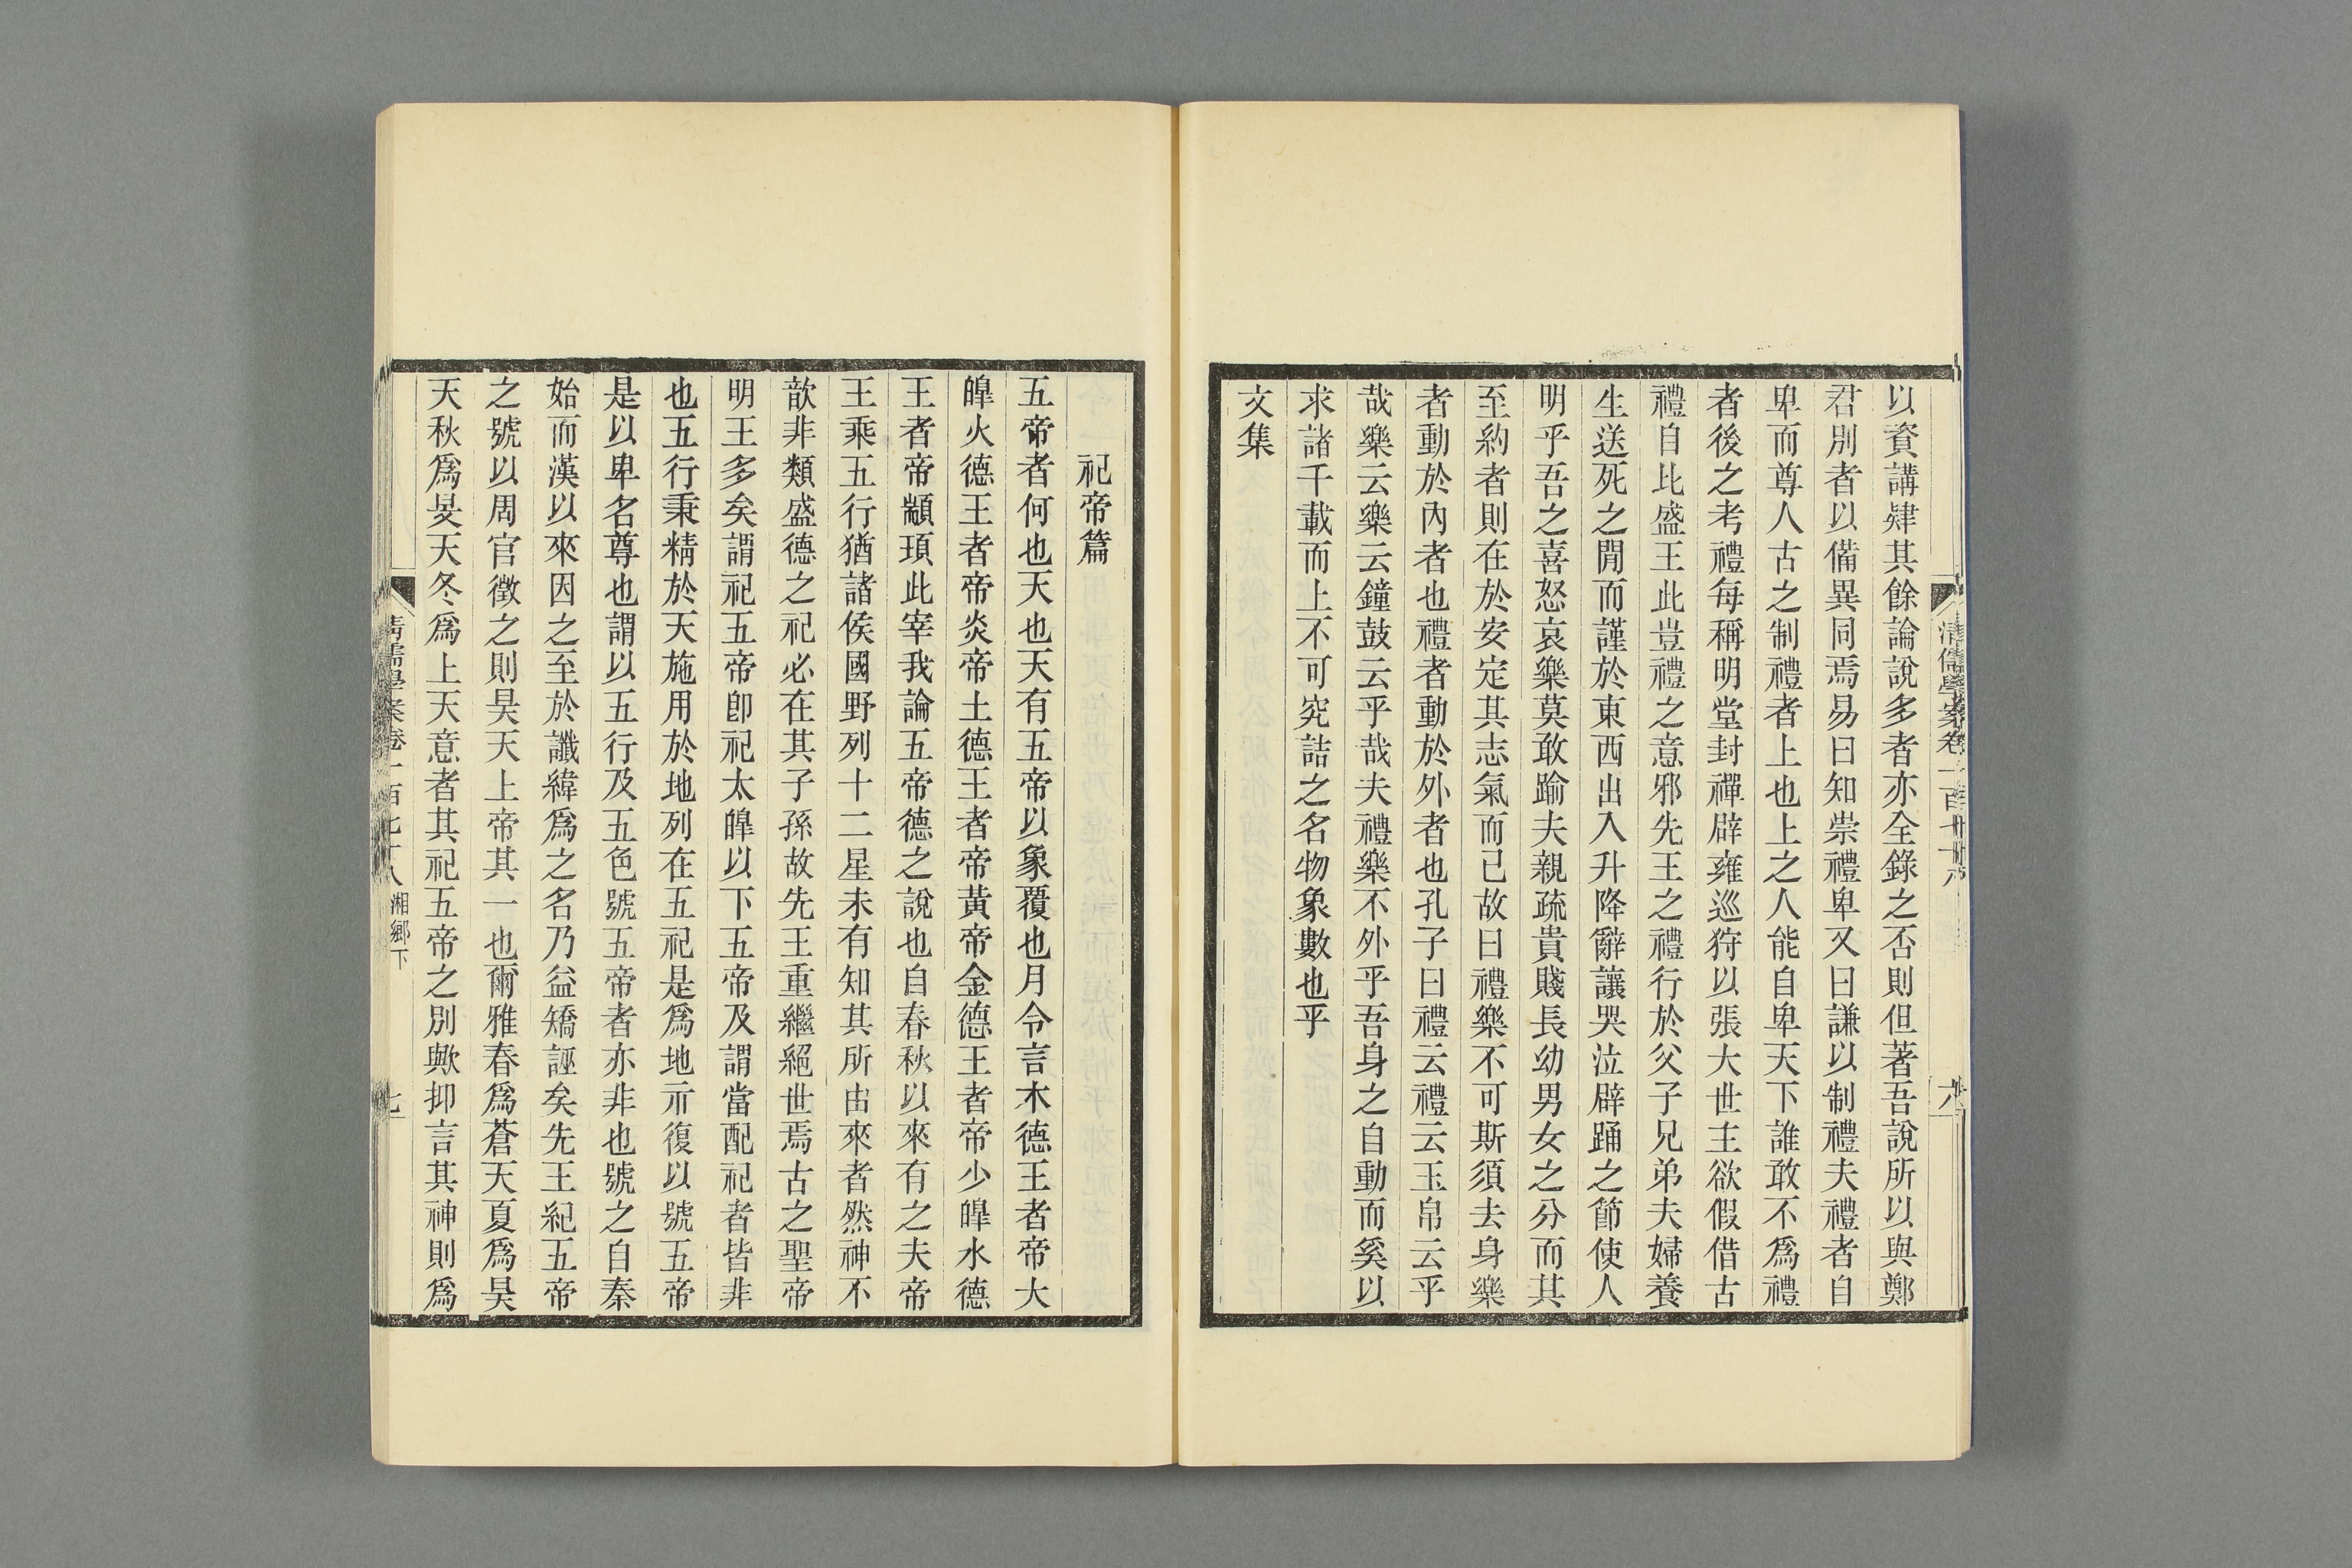 以資講肄其餘論說多者亦全錄之否則但著吾說所以與鄭
君別者以備異同焉易曰知崇禮卑又曰謙以制禮夫禮者自
卑而尊人古之制禮者上也上之人能自卑天下誰敢不爲禮
者後之考禮每稱明堂封禪辟雍巡狩以張大世主欲假借古
禮自比盛王此豈禮之意邪先王之禮行於父子兄弟夫婦養
生送死之閒而謹於東西出入升降辭讓哭泣辟踊之節使人
明乎吾之喜怒哀樂莫敢踰夫親疏貴賤長幼男女之分而其
至約者則在於安定其志氣而已故曰禮樂不可斯須去身樂
者動於內者也禮者動於外者也孔子曰禮云禮云玉帛云乎
哉樂云樂云鐘鼓云乎哉夫禮樂不外乎吾身之自動而奚以
求諸千載而上不可究詰之名物象數也乎
文集
祀帝篇
五帝者何也天也天有五帝以象覆也月令言木德王者帝大
皞火德王者帝炎帝土德王者帝黃帝金德王者帝少皞水德
王者帝顓頊此宰我論五帝德之說也自春秋以來有之夫帝
王乘五行猶諸侯國野列十二星未有知其所由來者然神不
歆非類盛德之祀必在其子孫故先王重繼絕世焉古之聖帝
明王多矣謂祀五帝卽祀太皞以下五帝及謂當配祀者皆非
也五行秉精於天施用於地列在五祀是爲地示復以號五帝
是以卑名尊也謂以五行及五色號五帝者亦非也號之自秦
始而漢以來因之至於讖緯爲之名乃益矯誣矣先王紀五帝
之號以周官徵之則昊天上帝其一也爾雅春爲蒼天夏爲昊
天秋爲旻天冬爲上天意者其祀五帝之別歟抑言其神則爲
湘鄉下
七